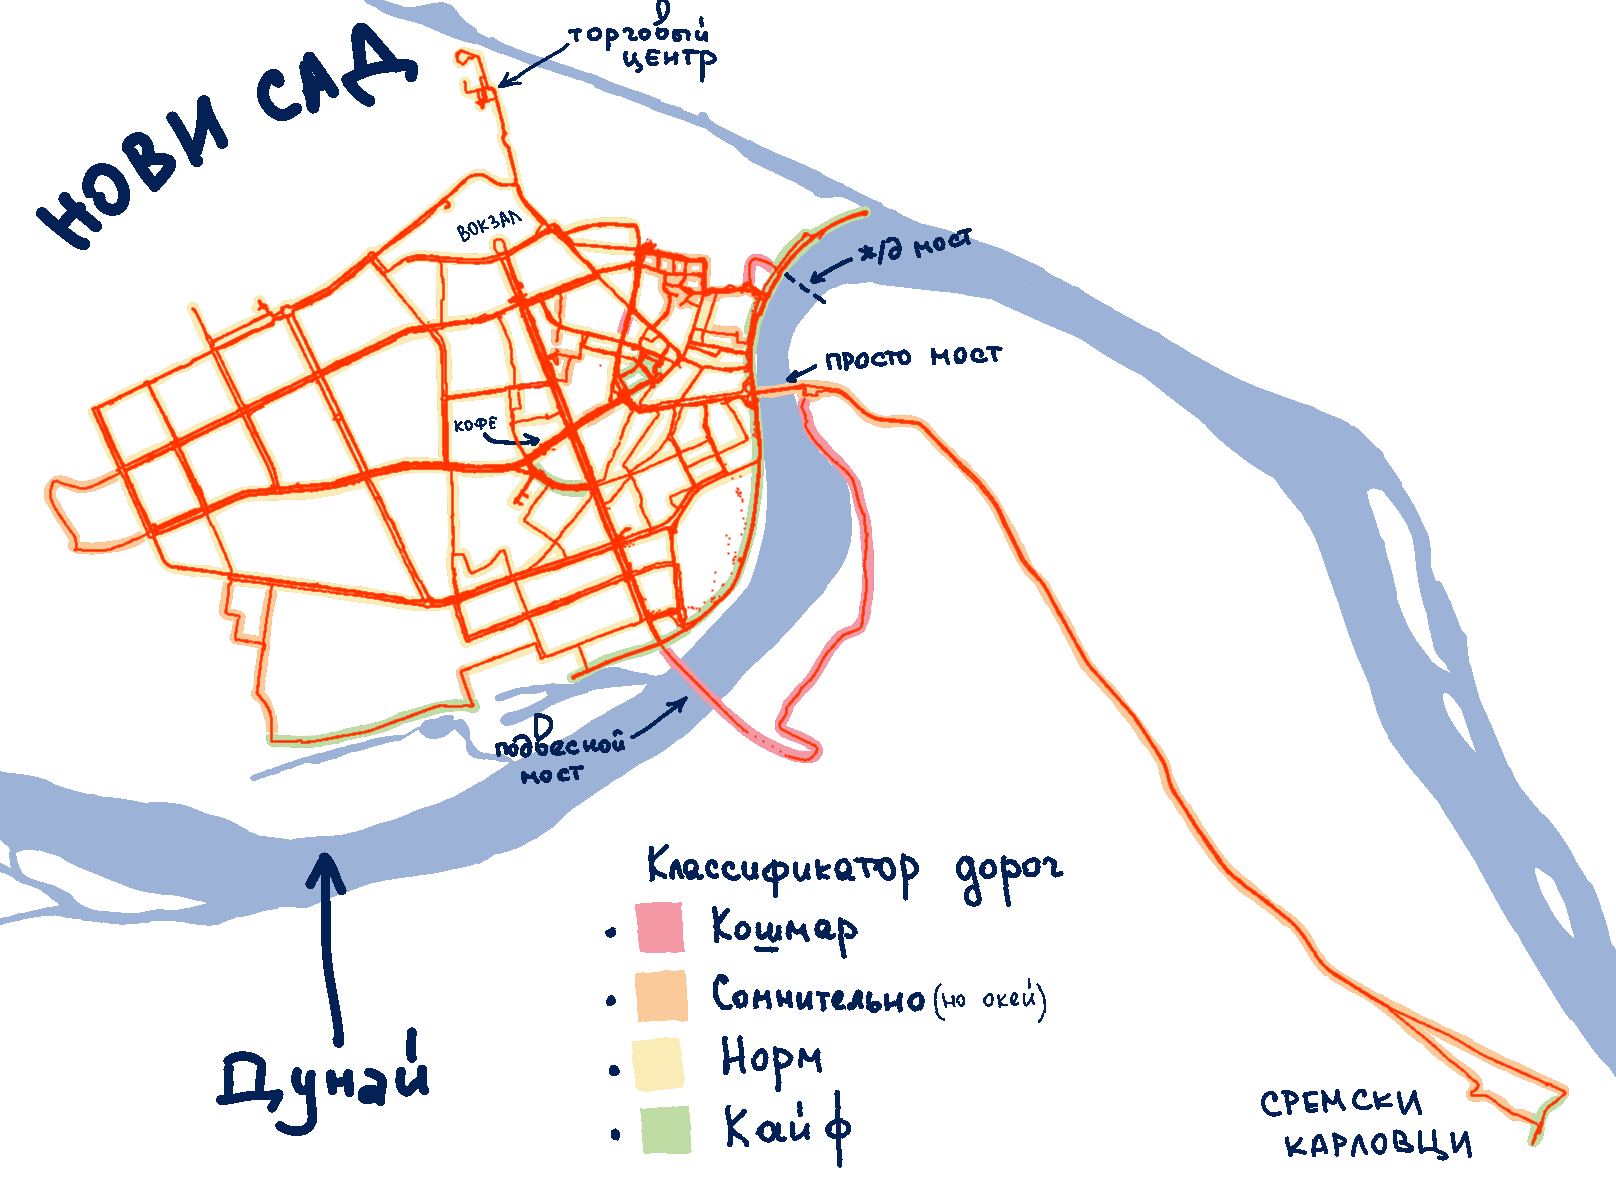 НОВИ САД
торговый
центр
ВОКЗАЛ
ж/д мост
просто мост
КОФЕ
подвесной
мост
Дунай
Классификатор дорог
• Кошмар
• Сомнительно (но окей)
• Норм
• Кайф
СРЕМСКИ
КАРЛОВЦИ